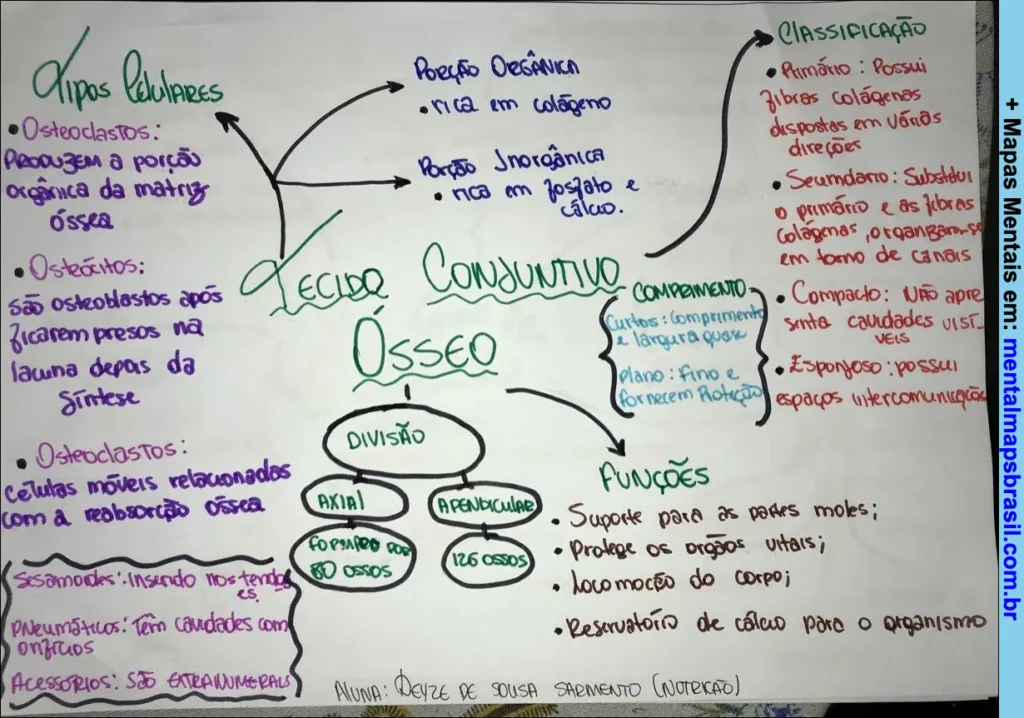 Tipos Celulares
• Osteoclastos:
Produzem a porção
orgânica da matriz
óssea
• Osteócitos:
São osteoblastos após
ficarem presos na
lacuna depois da
síntese
• Osteoclastos:
células móveis relacionados
com a reabsorção óssea
Sesamoides: Inserido nos tendõ
es.
Pneumáticos: Têm cavidades com
orifícios
Acessórios: são extranumerais
Porção Orgânica
• rica em colágeno
Porção Inorgânica
• rica em fosfato e
cálcio.
Tecido Conjuntivo
Ósseo
DIVISÃO
AXIAL
APENDICULAR
FORMADO POR
80 OSSOS
126 OSSOS
COMPRIMENTO
Curtos: Comprimento
e largura quase
Plano: Fino e
fornecem Proteção
CLASSIFICAÇÃO
• Primário: Possui
fibras colágenas
dispostas em várias
direções
• Secundário: Substitui
o primário e as fibras
colágenas, organizam-se
em torno de canais
• Compacto: NÃO apre
senta cavidades visí-
veis
• Esponjoso: possui
espaços intercomunicações
FUNÇÕES
• Suporte para as partes moles;
• Protege os orgãos vitais;
• Locomoção do corpo;
• Reservatório de cálcio para o organismo
Aluna: Deyze de Sousa Sarmento (Nutrição)
+ Mapas Mentais em: mentalmapsbrasil.com.br